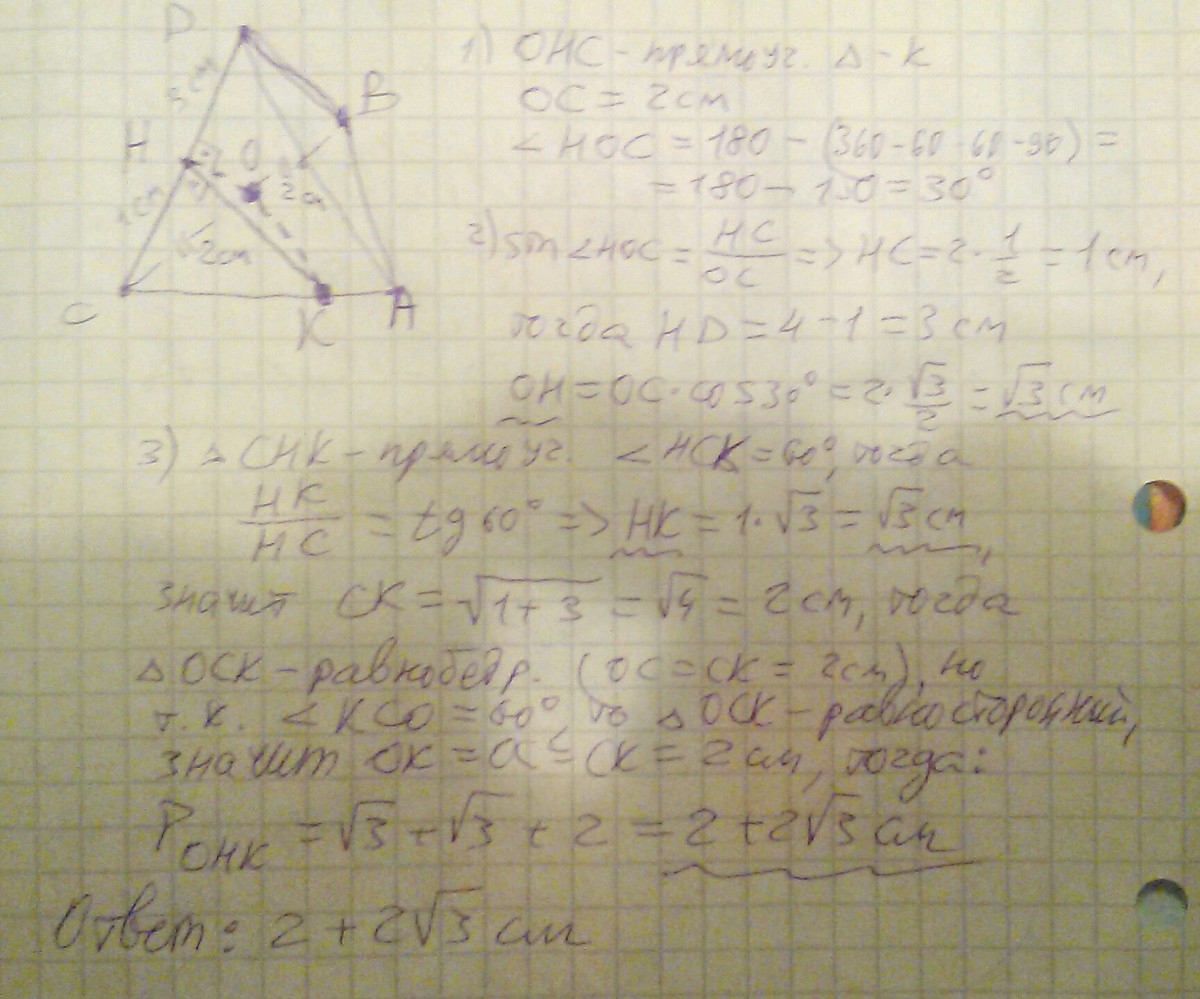 D
B
3 см
H
O
2 см
1 см
2 см
C
K
A
1) OHC - прямоуг. Δ-к
OC = 2 см
∠HOC = 180 - (360-60-60-90) =
= 180 - 150 = 30°
2) sin∠HOC = HC/OC => HC = 2·1/2 = 1 см,
тогда HD = 4 - 1 = 3 см
OH = OC·cos30° = 2·√3/2 = √3 см
3) Δ CHK - прямоуг. ∠HCK = 60°, тогда
HK/HC = tg 60° => HK = 1·√3 = √3 см,
значит CK = √1+3 = √4 = 2 см, тогда
Δ OCK - равнобедр. (OC = CK = 2 см), но
т.к. ∠KCO = 60°, то Δ OCK - равносторонний,
значит OK = OC = CK = 2 см, тогда:
P OHK = √3 + √3 + 2 = 2 + 2√3 см
Ответ: 2 + 2√3 см